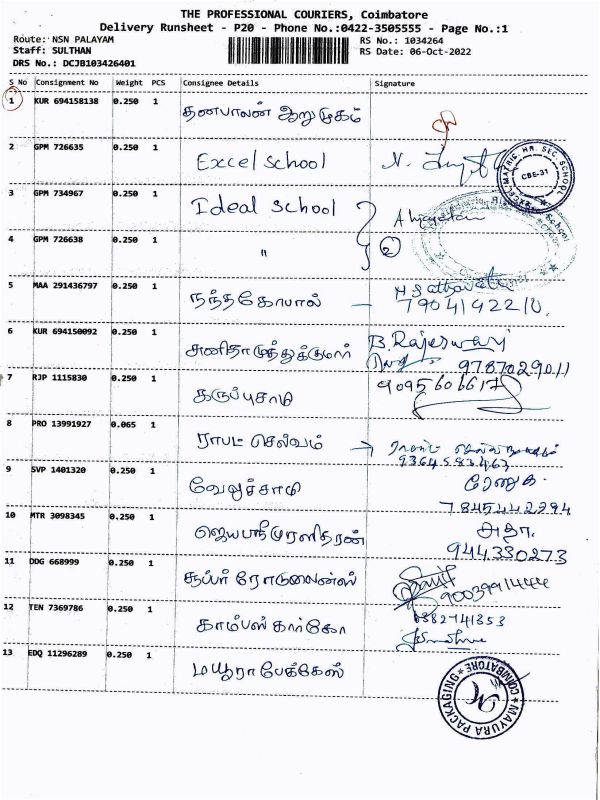 THE PROFESSIONAL COURIERS, Coimbatore
Delivery Runsheet - P20 - Phone No.:0422-3505555 - Page No.:1
Route: NSN PALAYAM RS No.: 1034264
Staff: SULTHAN RS Date: 06-Oct-2022
DRS No.: DCJB103426401
S No Consignment No Weight PCS Consignee Details Signature
1 KUR 694158138 0.250 1 தனபாலன் ஆறுமுகம்
2 GPM 726635 0.250 1 Excel School
EXCEL MATRIC HR. SEC. SCHOOL CBE-31
3 GPM 734967 0.250 1 Ideal School
4 GPM 726638 0.250 1 " 2
5 MAA 291436797 0.250 1 நந்தகோபால் –
6 KUR 694150092 0.250 1 அனிதாமுத்துக்குமார் B. Rajeswari
9787029011
7 RJP 1115830 0.250 1 கருப்புசாமி 9095606617
8 PRO 13991927 0.065 1 ராபட் செல்வம் →
9364583463
9 SVP 1401320 0.250 1 வேலுச்சாமி ரேணுகா
7845442294
10 MTR 3098345 0.250 1 ஜெயஸ்ரீமுரளிதரன்
944330273
11 DDG 668999 0.250 1 சூப்பர் ரோடுலைன்ஸ் 9003991444
12 TEN 7369786 0.250 1 காம்பஸ் கார்கோ
13 EDQ 11296289 0.250 1 மயூரா பேக்கேஸ்
MAYURA PACKAGING COIMBATORE